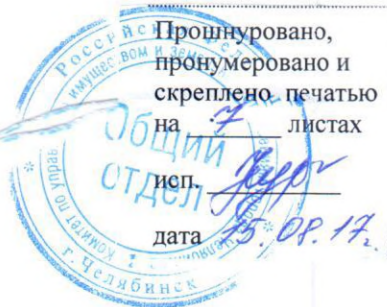 Прошнуровано,
пронумеровано и
скреплено печатью
на 7 листах
исп.
дата 15.08.17г.
Общий
отдел
г. Челябинск
Комитет по управ
имуществом и земел
Российск